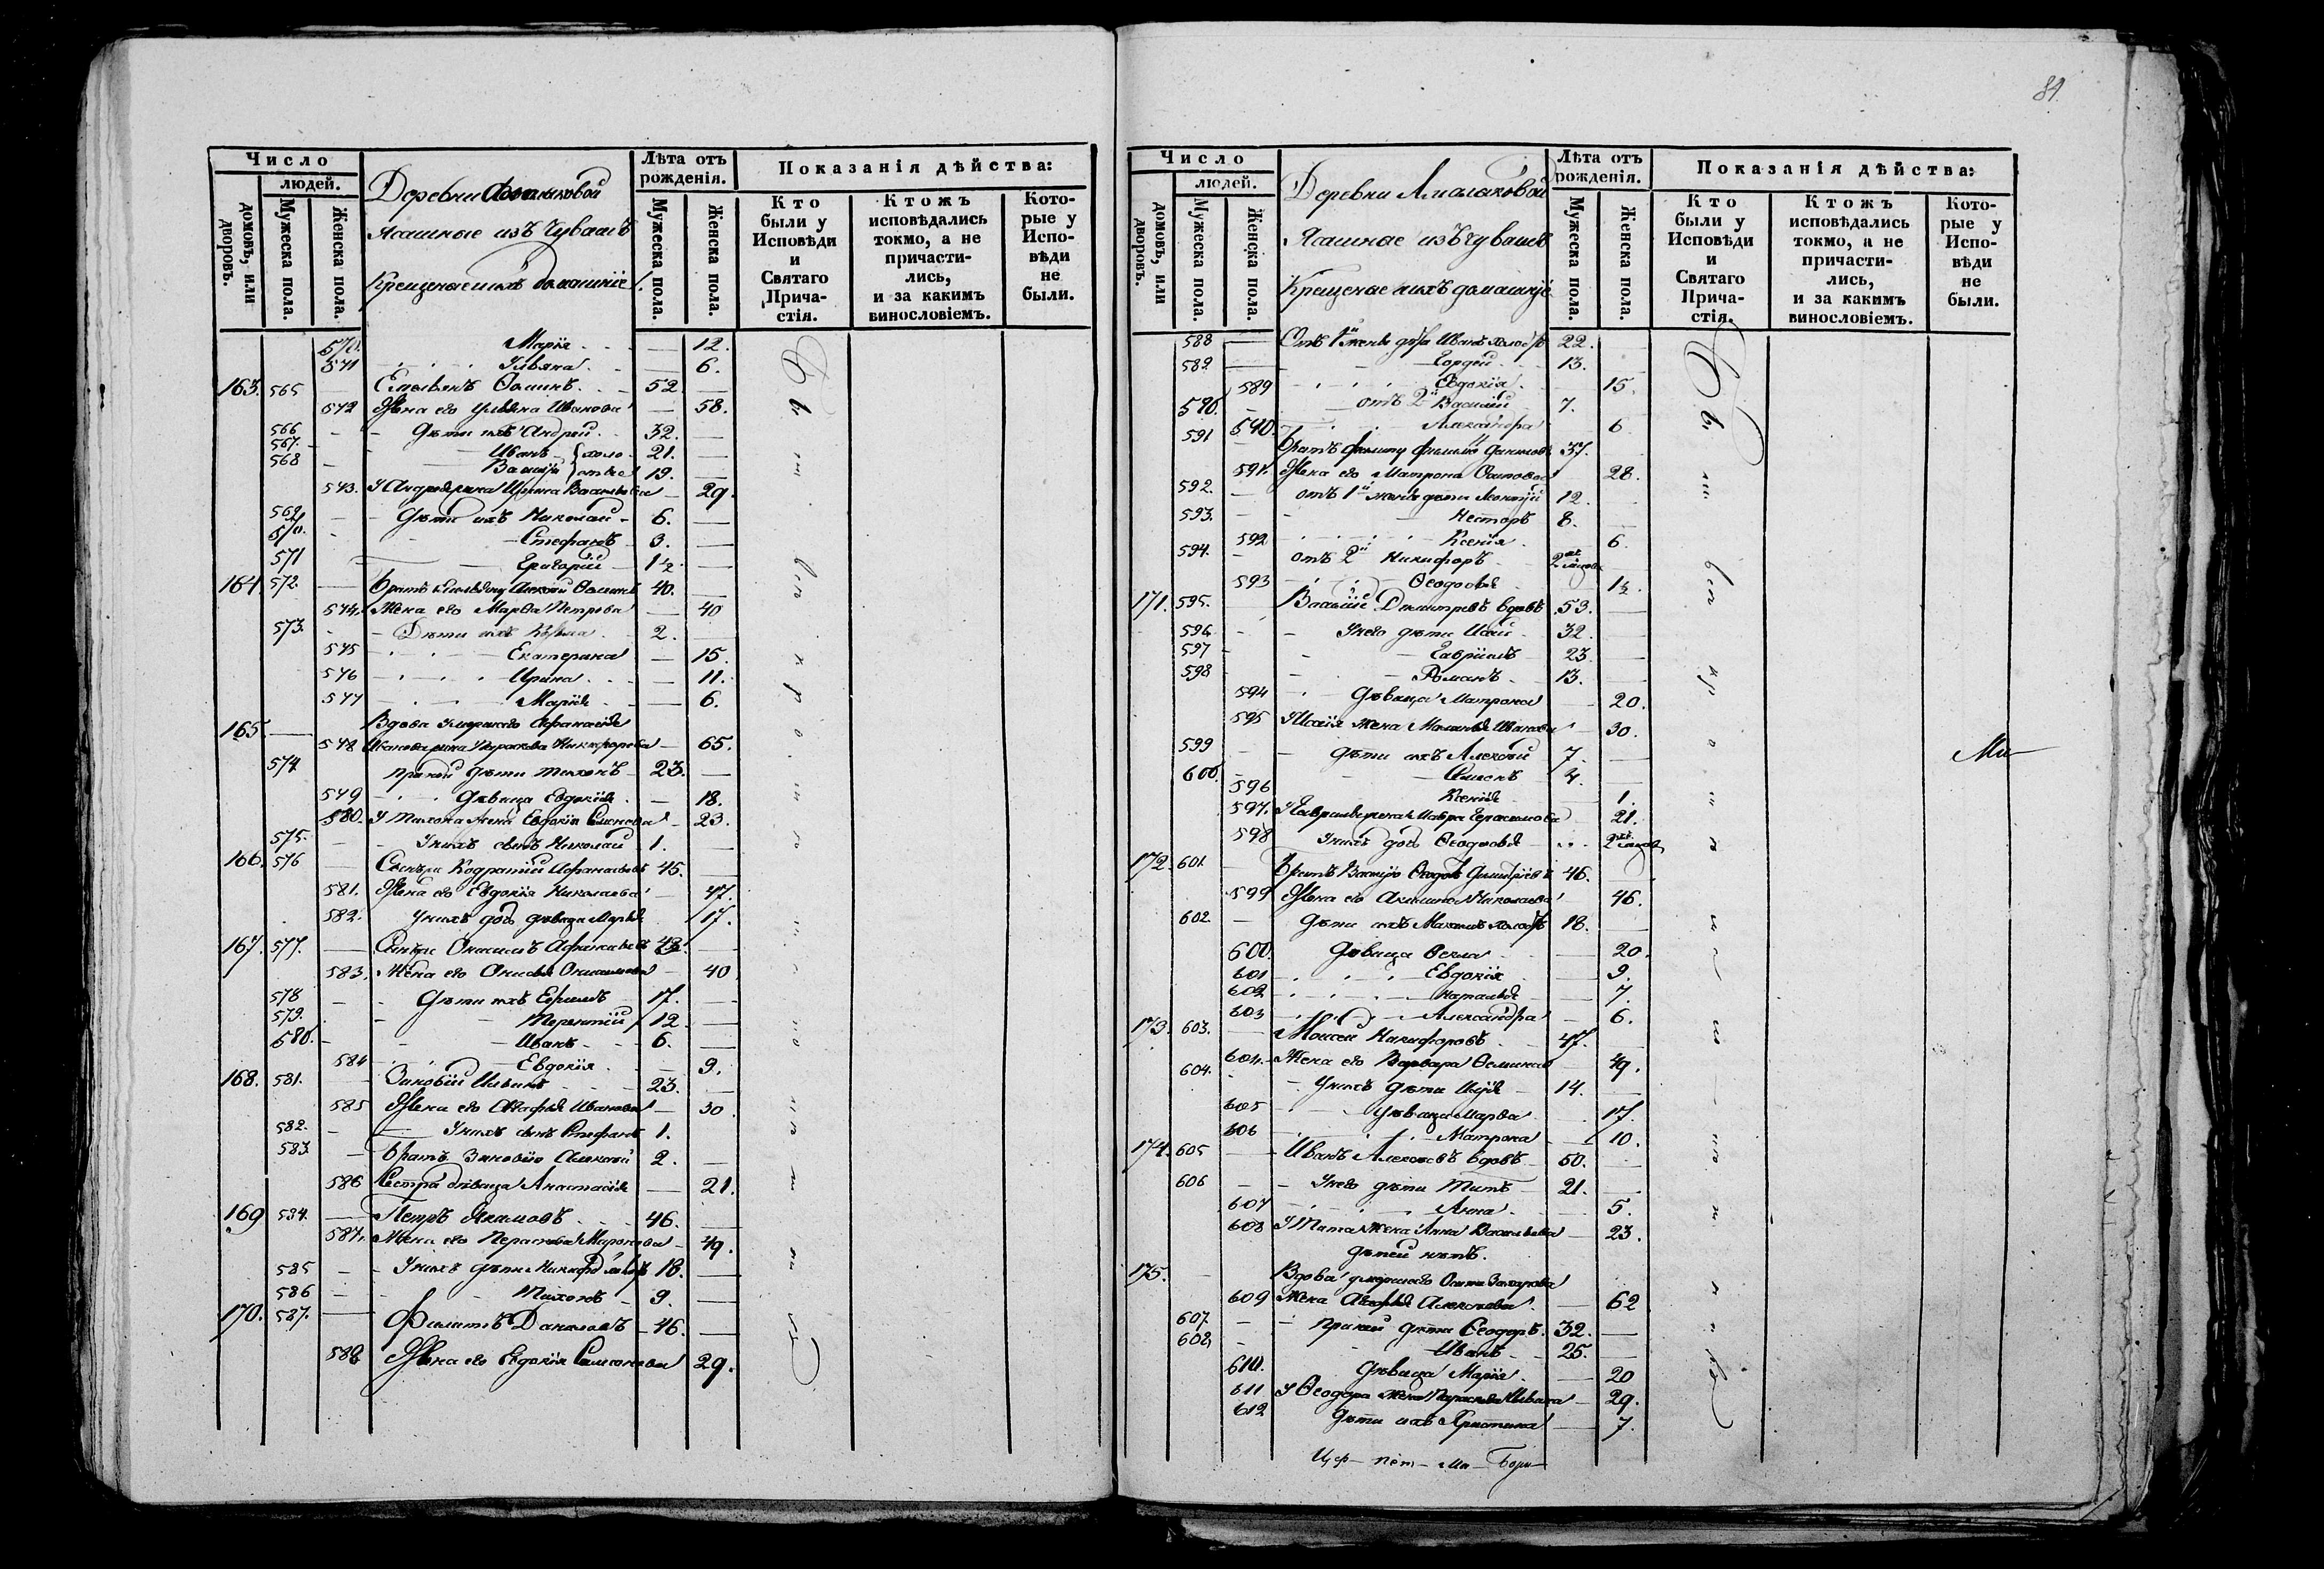 Число
людей.
домовъ, или дворовъ.
Мужеска пола.
Женска пола.
Деревни
Ясашные изъ Чувашъ
Крещеные ихъ домашніе
Лѣта отъ рожденія.
Мужеска пола.
Женска пола.
Показанія дѣйства:
Кто были у Исповѣди и Святаго Прича-стія.
Ктожъ исповѣдались токмо, а не причасти-лись, и за какимъ винословіемъ.
Кото-рые у Испо-вѣди не были.
570. Марія — 12.
571 Ульяна — 6.
163. 565 Емельянъ Ѳоминъ 52 —
572 Жена его Ульяна Иванова — 58.
566 Дѣти ихъ Андрей 32. —
567. Иванъ } холо- 21. —
568 Василій } стые 19. —
573. У Андрея жена Ирина Васильева — 29.
569 Дѣти ихъ Николай 6. —
570. Стефанъ 3. —
571 Григорій 1½ —
164 572. Братъ Емельяну Алексѣй Ѳоминъ 40. —
574. Жена его Марѳа Петрова — 40
573. Дѣти ихъ Козма 2. —
575 Екатерина — 15.
576 Ирина — 11.
577 Марія — 6.
165. Вдова умершаго Афанасія
578 Иванова жена Параскева Никифорова — 65.
574 при ней дѣти Тихонъ 23. —
579 Дѣвица Евдокія — 18.
580. У Тихона жена Евдокія Семенова — 23.
575. У нихъ сынъ Николай 1. —
166. 576 Кодратій Афанасьевъ 45. —
581. Жена его Евдокія Николаева — 47.
582. У нихъ дочь дѣвица Марья 17.
167. 577. Онисимъ Афанасьевъ 43. —
583. Жена его Анисья Онисимова — 40
578 Дѣти ихъ Ефимъ 17. —
579. Терентій 12 —
580. Иванъ 6. —
584 Евдокія — 9.
168. 581. Зиновій Ильинъ 23. —
585 Жена его Агафья Иванова — 30
582. У нихъ сынъ Стефанъ 1.
583. Братъ Зиновію Алексѣй 2. —
586 Сестра дѣвица Анастасія — 21.
169 584. Петръ Якимовъ 46. —
587. Жена его Параскева Миронова — 49.
585 У нихъ дѣти Никифоръ 18. —
586 Тихонъ 9. —
170. 587. Филипъ Даниловъ 46. —
588 Жена его Евдокія Симонова 29.
81.
Число
людей.
домовъ, или дворовъ.
Мужеска пола.
Женска пола.
Деревни Ямалаковой
Ясашные изъ Чувашъ
Крещеные ихъ домашніе
Лѣта отъ рожденія.
Мужеска пола.
Женска пола.
Показанія дѣйства:
Кто были у Исповѣди и Святаго Прича-стія.
Ктожъ исповѣдались токмо, а не причасти-лись, и за какимъ винословіемъ.
Кото-рые у Испо-вѣди не были.
588 Отъ 1й жены дѣти Иванъ холостъ 22.
589 Гордей 13.
589 Евдокія 15.
590. отъ 2й Василій 7.
591 590. Александра 6
Братъ Филипу Филипъ Даниловъ 37.
591. Жена его Матрона Осипова 28.
592. отъ 1й жены дѣти Леонтій 12.
593. Несторъ 8.
592 Ксенія 6.
594. отъ 2й Никифоръ 2
593 Ѳеодосья 1½.
171. 595. Василій Димитріевъ вдовъ 53. —
596. У него дѣти Исай 32. —
597 Гавріилъ 23 —
598 Романъ 13. —
594 Дѣвица Матрона 20.
595 У Исаія жена Меланья Иванова 30.
599 дѣти ихъ Алексѣй 7. —
600. Семенъ 4. —
596 Ксенія 1.
597. У Гавріила жена Мавра Герасимова 21.
598 У нихъ дочь Ѳеодосья 2
172. 601. Братъ Василію Ѳеодоръ Димитріевъ 46. —
599 Жена его Акилина Николаева 46.
602. Дѣти ихъ Михаилъ холостъ 18. —
600. Дѣвица Ѳекла — 20.
601 Евдокія — 9.
602 Наталья — 7.
603 Александра — 6.
173. 603. Моисей Никифоровъ 47.
604. Жена его Варвара 49.
604. У нихъ дѣти Илія 14. —
605 Дѣвица Марѳа 17.
606 Матрона — 10.
174. 605 Иванъ Алексѣевъ вдовъ 50. —
606 У него дѣти Титъ 21. —
607 Анна — 5.
608 У Тита жена Анна Васильева — 23.
дѣтей нѣтъ.
175. Вдова умершаго Осипа Захарова
609 Жена Агафья Алексѣева — 62
607. при ней дѣти Ѳеодоръ 32. —
608. Иванъ 25. —
610. Дѣвица Марія — 20
611 У Ѳеодора жена Параскева Ильина — 29.
612 Дѣти ихъ Христина — 7.